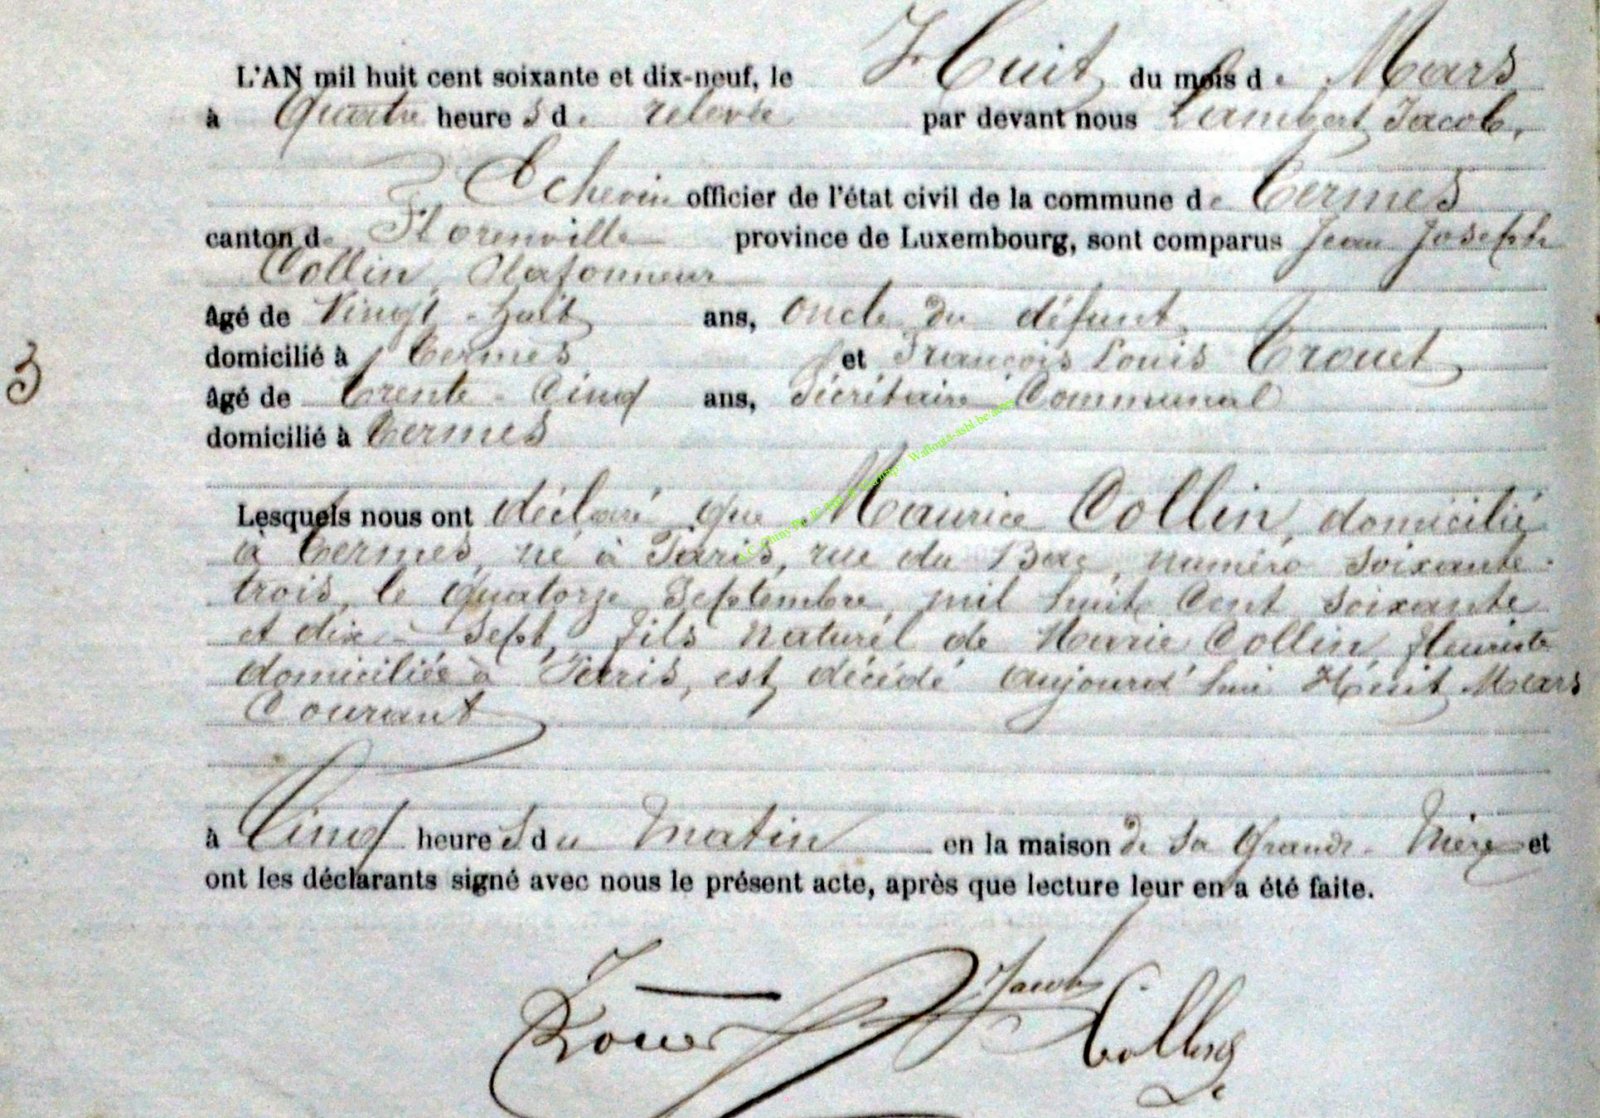 L'AN mil huit cent soixante et dix-neuf, le Huit du mois de Mars
à Quatre heures de relevée par devant nous Lambert Jacob,
Echevin officier de l'état civil de la commune de Termes
canton de Florenville province de Luxembourg, sont comparus Jean Joseph
Collin, Plafonneur
âgé de Vingt-huit ans, oncle du défunt,
domicilié à Termes et François Louis Trouet
3
âgé de trente-Cinq ans, Sécrétaire Communal
domicilié à Termes
Lesquels nous ont déclaré que Maurice Collin, domicilié
à Termes, né à Paris, rue du Bac, numéro soixante-
trois, le quatorze Septembre, mil huit Cent soixante
et dix-Sept, fils naturel de Marie Collin fleuriste
domiciliée à Paris, est décédé aujourd'hui Huit Mars
Courant
à Cinq heures du Matin en la maison de sa Grande-Mère et
ont les déclarants signé avec nous le présent acte, après que lecture leur en a été faite.
Jacob
Collin